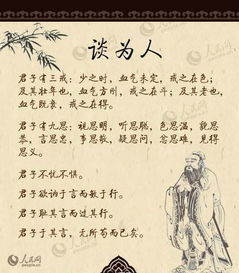 人民网
谈为人
君子有三戒：少之时，血气未定，戒之在色；
及其壮年也，血气方刚，戒之在斗；及其老也，
血气既衰，戒之在得。
君子有九思：视思明，听思聪，色思温，貌思
恭，言思忠，事思敬，疑思问，忿思难，见得
思义。
君子不忧不惧。
君子欲讷于言而敏于行。
君子耻其言而过其行。
君子于其言，无所苟而已矣。
人民网
people.cn